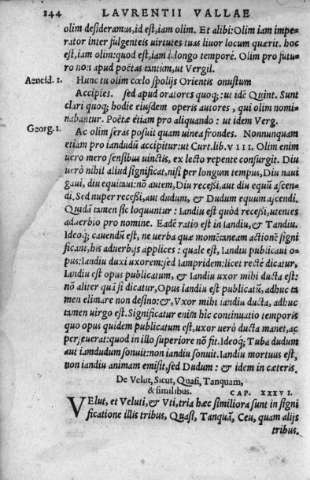 244 LAVRENTII VALLAE
olim desideramus, id est, iam olim. Et alibi: Olim iam impe-
rator inter fulgentes virtutes tuas liuor locum quærit. hoc
est, iam olim: quod est, iam à longo tempore. Olim pro futu-
ro non apud poëtas tantùm, ut Vergil.
Aeneid. 1. Hunc tu olim cœlo spolijs Orientis onustum
Accipies. sed apud oratores quoq;: ut idē Quint. Sunt
clari quoq; hodie eiusdem operis autores, qui olim nomi-
nabuntur. Poëtæ etiam pro aliquando: ut idem Verg.
Georg. 1. Ac olim seras posuit quam uinea frondes. Nonnunquam
etiam pro iandudū accipitur: ut Curt. lib. VIII. Olim enim
uero mero sensibus uinctis, ex lecto repente consurgit. Diu
uerò nihil aliud significat, nisi per longum tempus, Diu naui
gaui, diu equitaui: nō autem, Diu recessi, aut diu equū ascen-
di, Sed nuper recessi, aut dudum, & Dudum equum ascendi.
Quidā tamen sic loquuntur: Iandiu est quòd recessi, utentes
aduerbio pro nomine. Eadē ratio est in Iandiu, & Tandiu.
Ideoq; cauendū est, ne uerba quæ momētaneam actionē signi
ficant, his aduerbijs applices: quale est, Iandiu publicaui o-
pus: Iandiu duxi uxorem: sed Iampridem: licet rectè dicatur,
Iandiu est opus publicatum, & Iandiu uxor mihi ducta est:
nō aliter quā si dicatur, Opus iandiu est publicatū, adhuc ta
men elimare non desino: & Vxor mihi iandiu ducta, adhuc
tamen uirgo est. Significatur enim hîc continuatio temporis
quo opus quidem publicatum est, uxor uerò ducta manet, ac
perseuerat: quod in illo superiore nō fit. Ideoq; Tuba dudum
aut iamdudum sonuit: non iandiu sonuit. Iandiu mortuus est,
non iandiu animam emisit, sed Dudum: & idem in cæteris.
De Velut, Sicut, Quasi, Tanquam,
& similibus. CAP. XXXVI.
VElut, et Veluti, & Vti, tria hæc similiora sunt in signi
ficatione illis tribus, Quasi, Tanquā, Ceu, quam alijs
tribus.